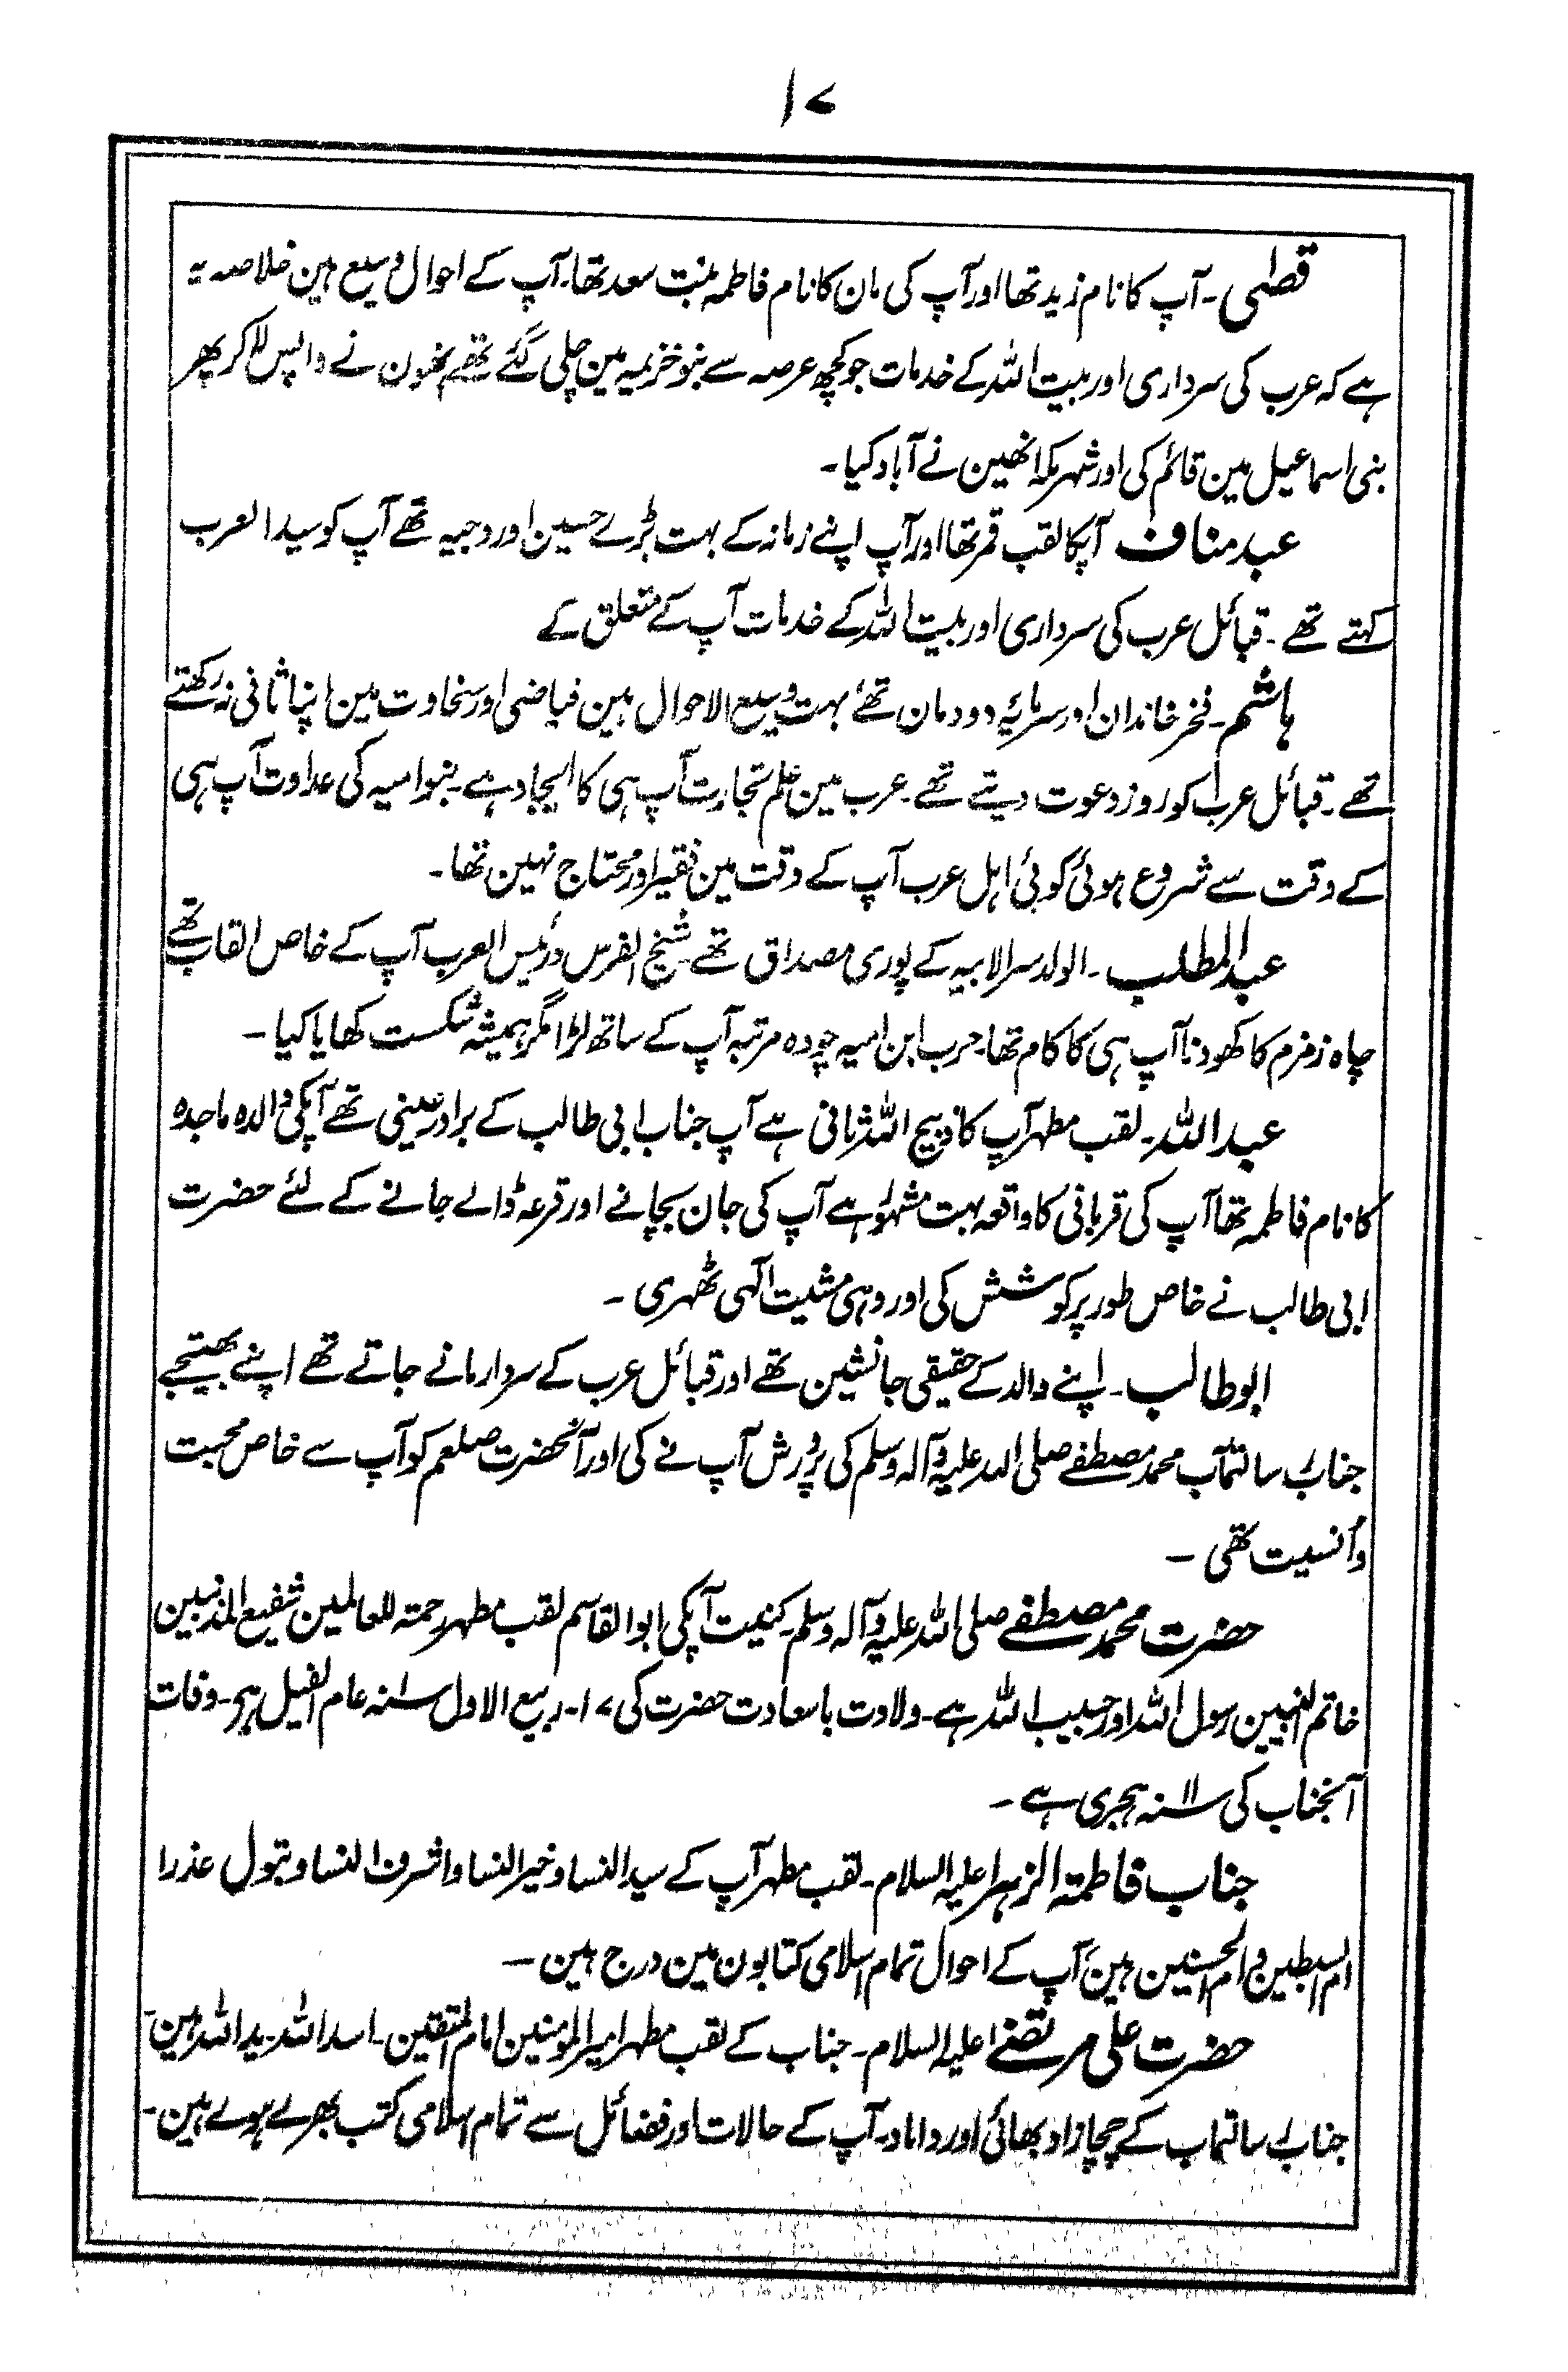 ۱۷
قصٰی۔ آپ کا نام زید تھا اور آپ کی مان کا نام فاطمہ بنت سعد تھا۔ آپ کے احوال وسیع ہین خلاصہ یہ
ہے کہ عرب کی سرداری اور بیت اللہ کے خدمات جو کچھ عرصہ سے بنو خزیمہ مین چلی گئے تھے انھون نے واپس لاکر پھر
بنی اسماعیل مین قائم کی اور شہر مکہ انھین نے آباد کیا۔
عبد مناف آپکا لقب قمر تھا اور آپ اپنے زمانہ کے بہت بڑے حسین اور وجیہ تھے آپ کو سید العرب
کہتے تھے۔ قبائل عرب کی سرداری اور بیت اللہ کے خدمات آپ کے متعلق کے
ہاشم۔ فخر خاندان اور سرمایۂ دودمان تھے بہت وسیع الاحوال ہین فیاضی اور سخاوت مین اپنا ثانی نہ رکھتے
تھے۔ قبائل عرب کو روز دعوت دیتے تھے۔ عرب مین علم تجارت آپ ہی کا ایجاد ہے۔ بنو امیہ کی عداوت آپ ہی
کے وقت سے شروع ہوئی کوئی اہل عرب آپ کے وقت مین فقیر اور محتاج نہین تھا۔
عبد المطلب۔ الولد سر لابیہ کے پوری مصداق تھے شیخ الفرس و رئیس العرب آپ کے خاص القاب تھے
چاہ زمزم کا کھودنا آپ ہی کا کام تھا۔ حرب ابن امیہ چودہ مرتبہ آپ کے ساتھ لڑا مگر ہمیشہ شکست کھایا کیا۔
عبد اللہ۔ لقب مطہر آپ کا ذبیح اللہ ثانی ہے آپ جناب ابی طالب کے برادر عینی تھے آپکی والدہ ماجدہ
کا نام فاطمہ تھا آپ کی قربانی کا واقعہ بہت مشہور ہے آپ کی جان بچانے اور قرعہ ڈالے جانے کے لئے حضرت
ابی طالب نے خاص طور پر کوشش کی اور وہی مشیت الٰہی ٹھہری۔
ابو طالب۔ اپنے والد کے حقیقی جانشین تھے اور قبائل عرب کے سردار مانے جاتے تھے اپنے بھتیجے
جناب رسالتمآب محمد مصطفے صلی اللہ علیہ وآلہ وسلم کی پرورش آپ نے کی اور آنحضرت صلعم کو آپ سے خاص محبت
و اُنسیت تھی۔
حضرت محمد مصطفے صلی اللہ علیہ وآلہ وسلم۔ کنیت آپکی ابو القاسم لقب مطہر رحمتہ للعالمین شفیع المذنبین
خاتم النبیین رسول اللہ اور حبیب اللہ ہے۔ ولاوت باسعادت حضرت کی ۱۷۔ ربیع الاول سنہ ۱ عام الفیل ہے۔ وفات
آنجناب کی سنہ ۱۱ ہجری ہے۔
جناب فاطمتہ الزہرا علیہ السلام۔ لقب مطہر آپ کے سید النسا و خیر النسا و اشرف النسا و بتول عذرا
ام السبطین و ام الحسنین ہین آپ کے احوال تمام اسلامی کتابون مین درج ہین۔
حضرت علی مرتضےٰ علیہ السلام۔ جناب کے لقب مطہر امیر المومنین امام المتقین۔ اسد اللہ۔ ید اللہ ہین۔
جناب رسالتماب کے چچا زاد بھائی اور داماد۔ آپ کے حالات اور فضائل سے تمام اسلامی کتب بھرے ہوے ہین۔